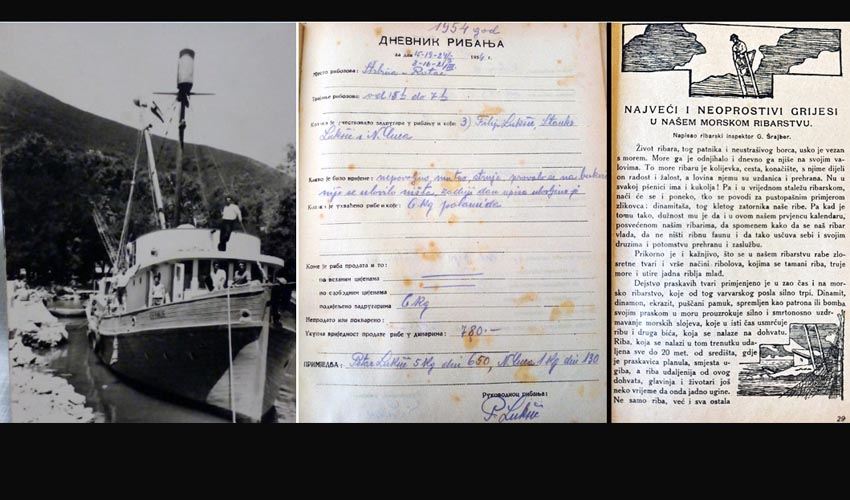 1954 god
ДНЕВНИК РИБАЊА
за дан 195 г.
Мјесто риболова:
Трајање риболова: od 18 h do 7 h
Ко је учествовао задругара у рибању и који: 3) Filip Lukšić, Stanko
Lukšić i N.
Какво је било вријеме: nepovoljno, mutno, struje,
Колико је ухваћено рибе и које: 6 kg palamida
Коме је риба продата и то:
по везаним цијенама
по слободним цијенама
подијељено задругарима 6 kg
Непродато или покварено:
Укупна вриједност продате рибе у динарима: 780.-
ПРИМЈЕДБА: Petar Lukšić 5 kg din 650, N. 1 kg din 130
Руководилац рибања:
P. Lukšić
NAJVEĆI I NEOPROSTIVI GRIJESI
U NAŠEM MORSKOM RIBARSTVU.
Napisao ribarski inspektor G. Šrajber.
Život ribara, tog patnika i neustrašivog borca, usko je vezan
s morem. More ga je odnjihalo i dnevno ga njiše na svojim va-
lovima. To more ribaru je kolijevka, cesta, konačište, s njime dijeli
on radost i žalost, a lovina njemu su uzdanica i prehrana. Nu u
svakoj pšenici ima i kukolja! Pa i u vrijednom staležu ribarskom,
naći će se i poneko, tko se povodi za pustopašnim primjerom
zlikovca: dinamitaša, tog kletog zatornika naše ribe. Pa kad je
tomu tako, dužnost mu je da i u ovom našem prvjencu kalendaru,
posvećenom našim ribarima, da spomenem kako da se naš ribar
vlada, da ne ništi ribnu faunu i da tako usčuva sebi i svojim
druzima i potomstvu prehranu i zaslužbu.
Prikorno je i kažnjivo, što se u našem ribarstvu rabe zlo-
sretne tvari i vrše načini ribolova, kojima se tamani riba, truje
more i utire jadna riblja mlađ.
Dejstvo praskavih tvari primjenjeno je u zao čas i na mor-
sko ribarstvo, koje od tog varvarskog posla silno trpi. Dinamit,
dinamon, ekrazit, puščani pamuk, spremljen kao patrona ili bomba
svojim praskom u moru prouzrokuje silno i smrtonosno uzdr-
mavanje morskih slojeva, koje u isti čas usmrćuje
ribu i druga bića, koja se nalaze na dohvatu.
Riba, koja se nalazi u tom trenutku uda-
ljena sve do 20 met. od središta, gdje
je praskavica planula, smjesta u-
giba, a riba udaljenija od ovog
dohvata, glavinja i životari još
neko vrijeme da onda jadno ugine.
Ne samo riba, već i sva ostala
29